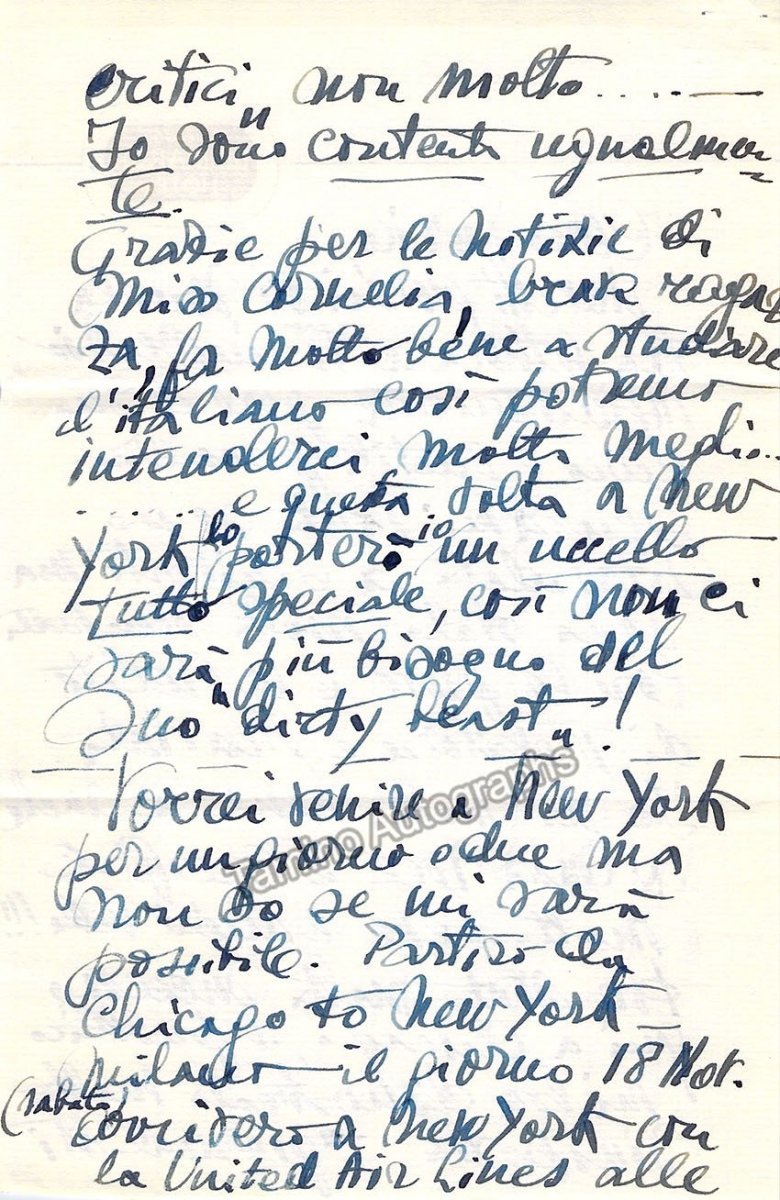 critici" non molto.....—
Io sono contento ugualmen-
te.
Grazie per le notizie di
Miss Cornelia, brava ragaz
za, fa molto bene a studiare
l'italiano così potremo
intenderci molto meglio..
........ e questa volta a New
York lo porterò io un uccello
tutto speciale, così non ci
sarà più bisogno del
Suo "dirty beast"!
Vorrei venire a New York
per un giorno o due ma
non so se mi sarà
possibile. Partirò da
Chicago to New York—
Milano — il giorno 18 Nov.
(sabato)
arriverò a New York con
la United Air Lines alle
Tamino Autographs